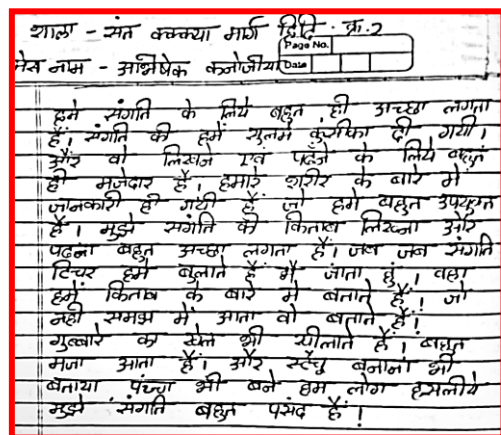 शाला - संत कक्कया मार्ग हिंदि - क्र.2
Page No.
Date
मेरा नाम - अभिषेक कनोजीया
हमे संगति के लिये बहुत ही अच्छा लगता
हैं। संगति की हमें सुलभ पुस्तीका दी गयी।
और वो लिखने एवं पढ़ने के लिये बहुत
ही मजेदार हैं। हमारे शरीर के बारे में
जानकारी दी गयी हैं जो हमे बहुत उपयुक्त
हैं। मुझे संगति की किताब लिखना और
पढना बहुत अच्छा लगता हैं। जब जब संगति
टिचर हमे बुलाते हैं मै जाता हुं, वहा
हमें किताब के बारे मे बताते हैं। जो
नही समझ में आता वो बताते हैं।
गुब्बारे का खेल भी सीखाते हैं। बहुत
मजा आता हैं। और स्टॅचु बनाना भी
बताया पंच्छा भी बने हम लोग इसलीये
मुझे संगति बहुत पसंद हैं।